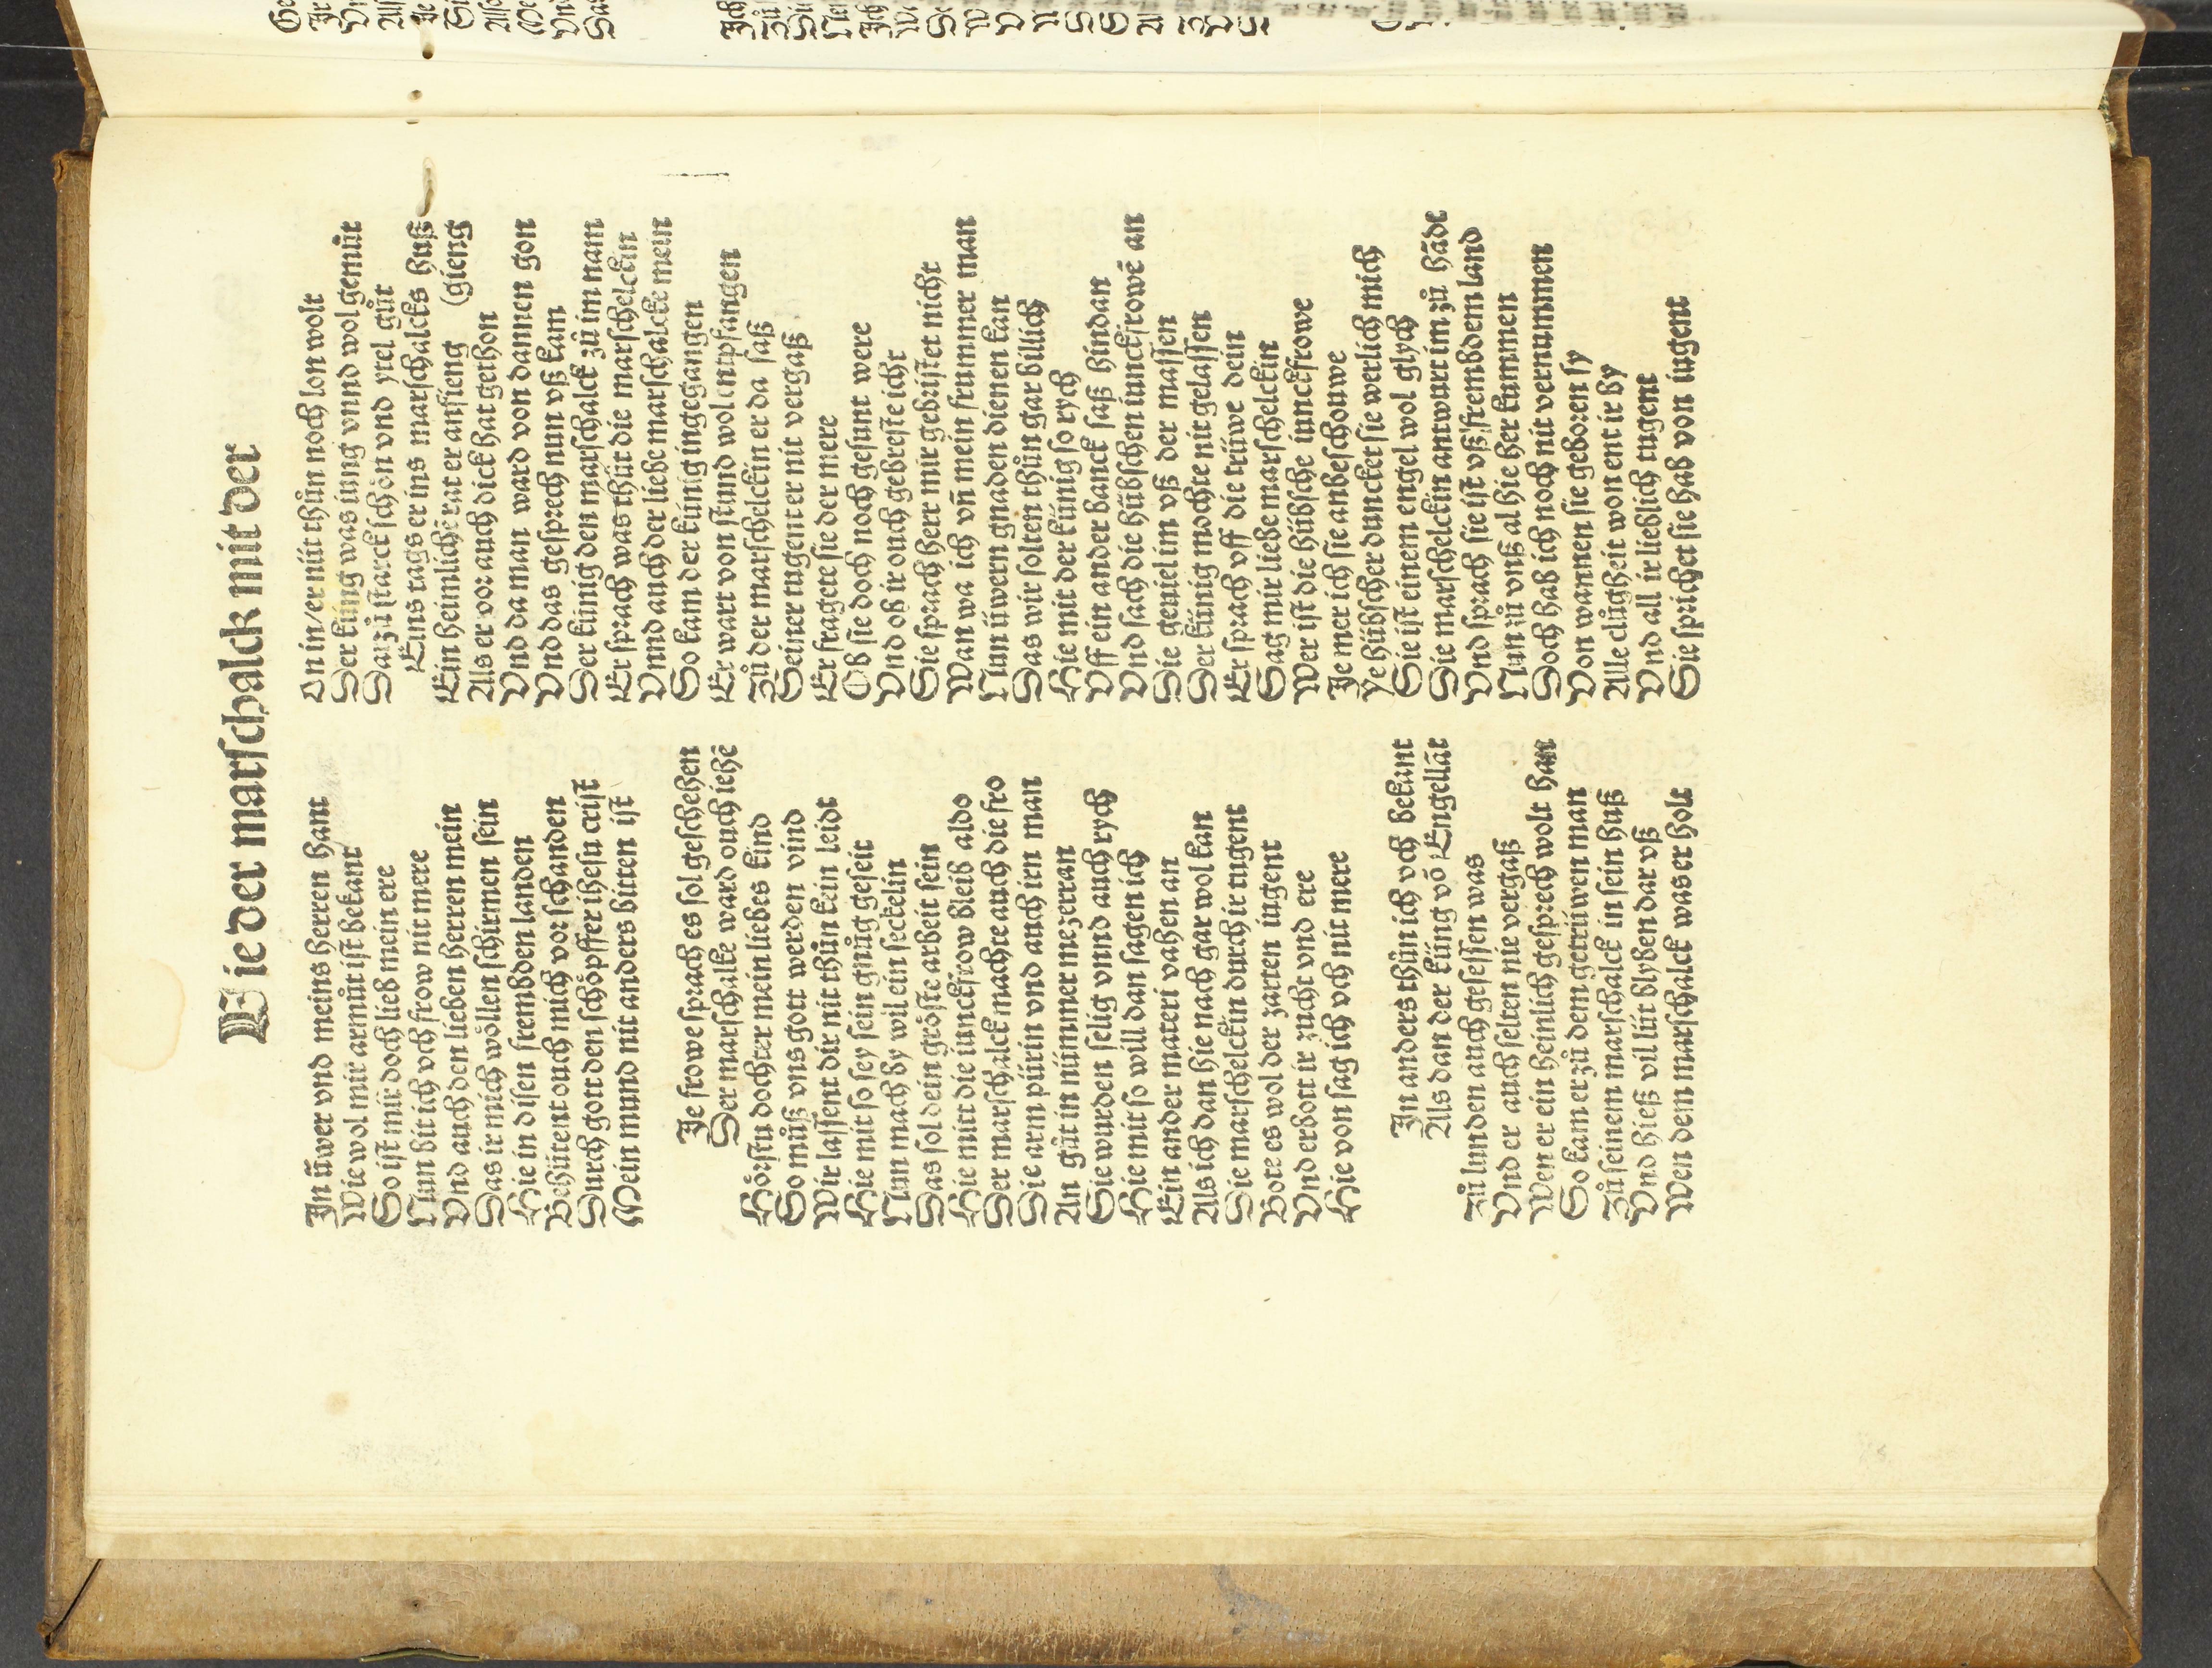 Wie der marschalck mit der
In üwer vnd meins herren hant
Wie wol mir armůt ist bekant
So ist mir doch lieb mein ere
Nun bit ich vch frow nit mere
Vnd auch den lieben herren mein
Das ir mich wöllen schirmen sein
Hie in disen frembden landen
Behütent ouch mich vor schanden
Durch gott den schöpffer ihesu crist
Mein mund nit anders bitten ist
Je frowe sprach es sol geschehen
Der marschalke ward ouch iehē
Hörstu dochter mein liebes kind
So můß vns gott werden vind
Wir lassent dir nit thůn kein leidt
Hie mit so sey sein gnůg geseit
Nun mach by wil ein seckelin
Das sol dein gröste arbeit sein
Hie mitt die iunckfrow bleib aldo
Der marschalck machte auch die fro
Die arm pürin vnd auch irn man
An gůt in nümmer me zerran
Sie wurden selig vnnd auch rych
Hie mit so will dan sagen ich
Ein ander materi vahen an
Als ich dan hie nach gar wol kan
Die marschelckin durch ir tugent
Bott es wol der zarten iugent
Vnd erbott ir zucht vnd ere
Hie von sag ich vch nit mere
In anders thůn ich vch bekant
Als dan der küng vō Engellāt
Zů lunden auch gesessen was
Vnd er auch selten nie vergaß
Wen er ein heinlich gesprech wolt han
So kam er zů dem getrüwen man
Zů seinem marschalck in sein huß
Vnd hieß vil lüt blyben dar vß
Wen dem marschalck was er holt
On in/er nüt thůn noch lon wolt
Der küng was iung vnnd wol gemůt
Darzů starck schön vnd ytel gůt
Eins tags er ins marschalcks huß
Ein heimlichē rat er anfieng (gieng
Als er vor auch dick hat gethon
Vnd da man ward von dannen gon
Vnd das gesprech nun vß kam
Der künig den marschalck zů im nam
Er sprach was thůt die marschelckin
Vnnd auch der liebe marschalcke mein
So kam der künig in gegangen
Er wart von stund wol entpfangen
Zů der marschelckin er da saß
Seiner tugent er nit vergaß
Er fragete sie der mere
Ob sie doch noch gesunt were
Vnd ob ir ouch gebreste icht
Sie sprach herr mir gebristet nicht
Wan wa ich vn̄ mein frummer man
Nun üwern gnaden dienen kan
Das wir solten thůn gar billich
Hie mit der künig so rych
Vff ein ander banck saß hindan
Vnd sach die hübschen iunckfrowē an
Die geuiel im vß der massen
Der künig mochte nit gelassen
Er sprach vff die trüwe dein
Sag mir liebe marschelckin
Wer ist die hübsche iunckfrowe
Je mer ich sie anbeschouwe
Ye hübscher duncket sie werlich mich
Sie ist einem engel wol glych
Die marschelckin antwurt im zů hāde
Vnd sprach sie ist vß frembdem land
Nun zů vnß al hie her kummen
Doch hab ich noch nit vernummen
Von wannen sie geboren sy
Alle clůgheit wonent ir by
Vnd all ir lieblich tugent
Sie sprichet sie hab von iugent